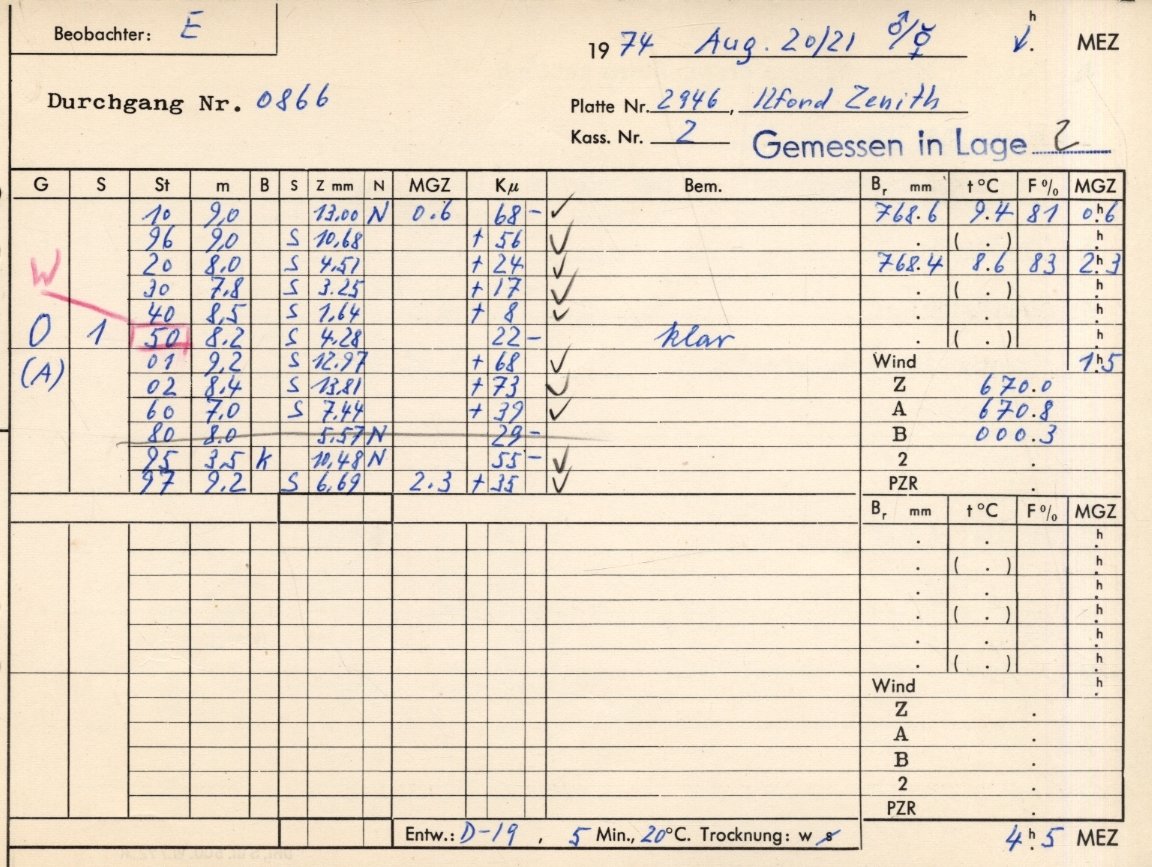 Beobachter: E
1974 Aug. 20/21 ♂/☿ h . MEZ
Durchgang Nr. 0866
Platte Nr. 2946, Ilford Zenith
Kass. Nr. 2
Gemessen in Lage 2
G S St m B S Z mm N MGZ Kμ Bem. Br mm t °C F % MGZ
10 9,0 13.00 N 0.6 68 - ✓ 768.6 9.4 81 0h.6
96 9,0 S 10,68 + 56 ✓ . ( . ) h
20 8.0 S 4.51 + 24 ✓ 768.4 8.6 83 2h.3
W 30 7.8 S 3.25 + 17 ✓ . ( . ) h
40 8,5 S 1,64 + 8 ✓ . . h
0 1 50 8.2 S 4.28 22 - klar . ( . ) h
(A) 01 9,2 S 12.97 + 68 ✓ Wind 1h.5
02 8.4 S 13,81 + 73 ✓ Z 670.0
60 7,0 S 7.44 + 39 ✓ A 670.8
80 8.0 5.57 N 29 - B 000.3
95 3,5 K 10,48 N 55 - ✓ 2 .
97 9.2 S 6,69 2.3 + 35 ✓ PZR .
Br mm t °C F % MGZ
. . h
. ( . ) h
. . h
. ( . ) h
. . h
. ( . ) h
Wind h
Z .
A .
B .
2 .
PZR .
Entw.: D-19 , 5 Min., 20°C. Trocknung: w s 4h.5 MEZ